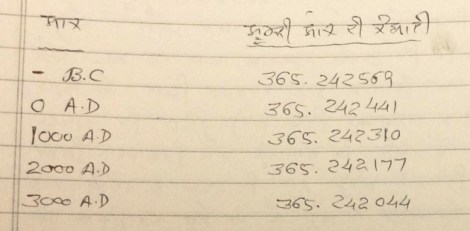 ਸਾਲ ਸੂਰਜੀ ਸਾਲ ਦੀ ਲੰਬਾਈ
- B.C 365.242569
0 A.D 365.242441
1000 A.D 365.242310
2000 A.D 365.242177
3000 A.D 365.242044